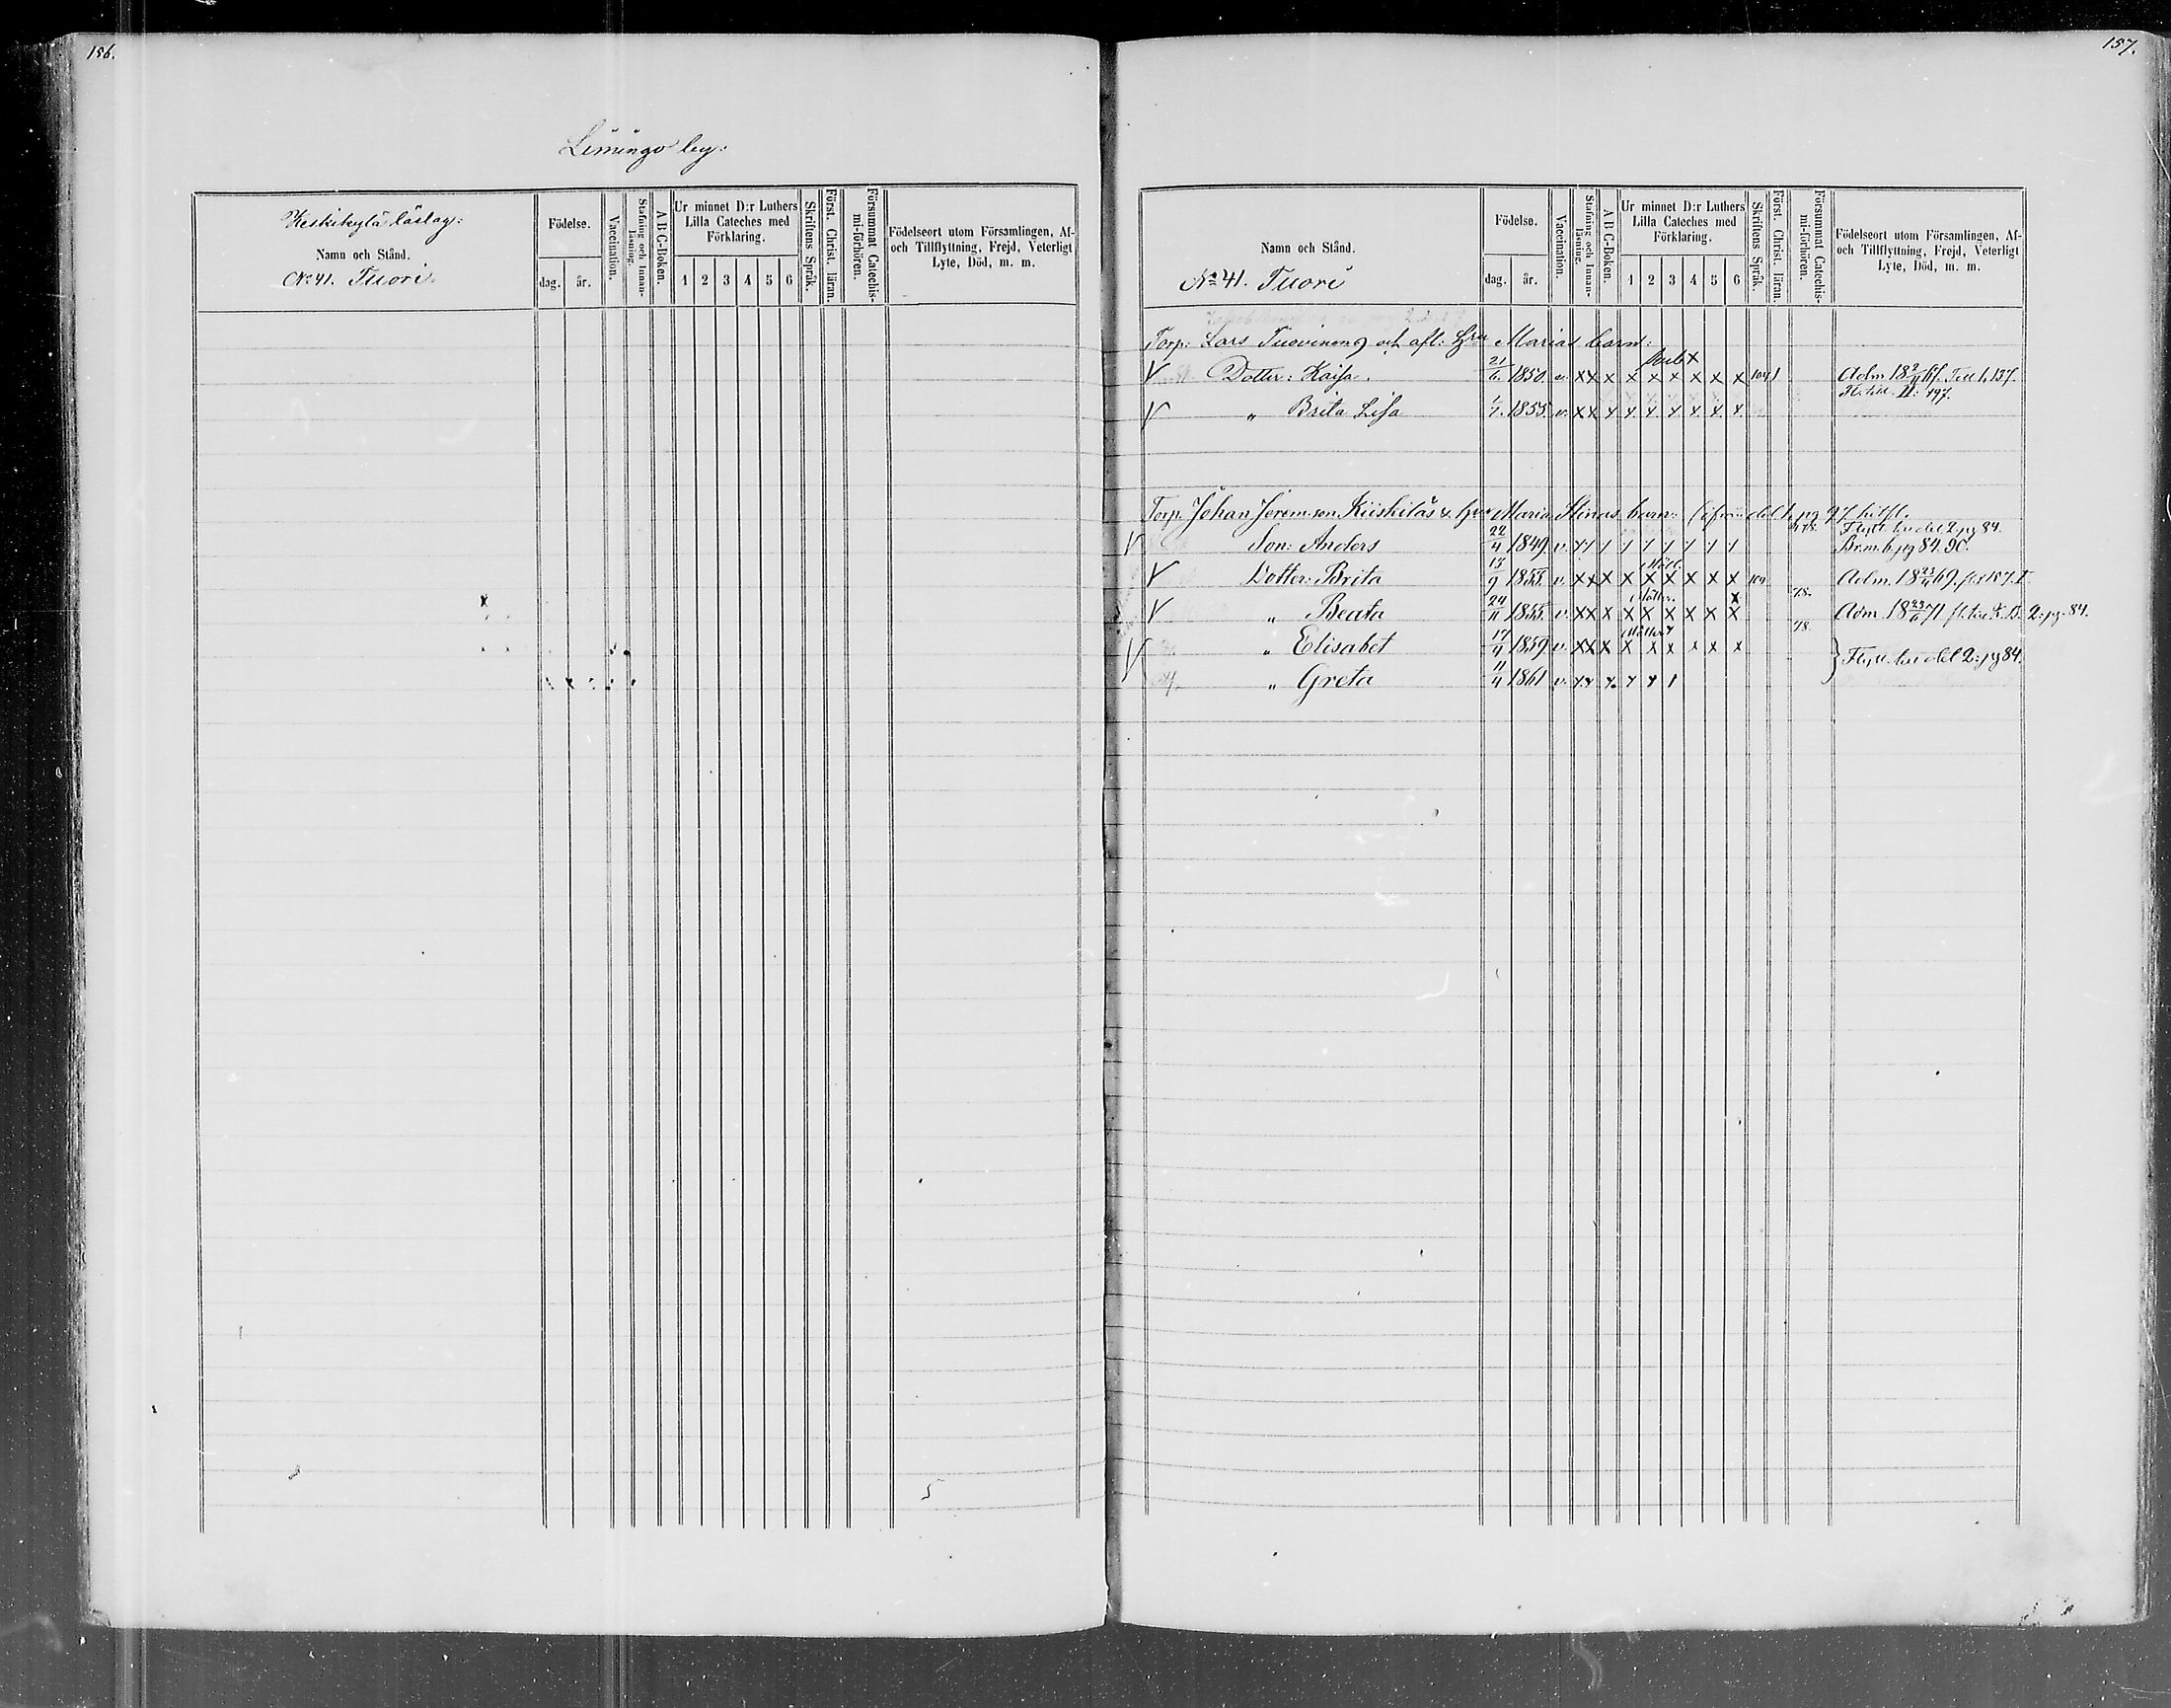 156.
Limingo by:
Keskikylä läslag:
Namn och Stånd.
No 41. Tuori.
Födelse.
dag. år.
Vaccination.
Stafning och Innan-läsning.
A B C-Boken.
Ur minnet D:r Luthers
Lilla Cateches med
Förklaring.
1 2 3 4 5 6
Skriftens Språk.
Först. Christ. läran.
Försummat Catechis-mi-förhören.
Födelseort utom Församlingen, Af-
och Tillflyttning, Frejd, Veterligt
Lyte, Död, m. m.
157.
Namn och Stånd.
No 41. Tuori
Födelse.
dag. år.
Vaccination.
Stafning och Innan-läsning.
A B C-Boken.
Ur minnet D:r Luthers
Lilla Cateches med
Förklaring.
1 2 3 4 5 6
Skriftens Språk.
Först. Christ. läran.
Försummat Catechis-mi-förhören.
Födelseort utom Församlingen, Af-
och Tillflyttning, Frejd, Veterligt
Lyte, Död, m. m.
Torp: Lars Tuovinens och afl: Hru Marias barn:
V Dotter: Kajsa. 21/6 1850. v. x x x x x x x x x
V " Brita Lisa 1/7 1855. v. x x x x x x x x x
Fl. till II: 497.
Torp. Johan Jeremson Kiiskiläs o. hru Maria Stinas barn:
V Son: Anders 22/4 1849 v.
Flytt. till del 2 pg 84.
V Dotter: Brita 13/9 1853. v. x x x x x x x x x
Adm. 18 23/4 69.
78.
V " Beata 24/11 1855. v. x x x x x x x x x
Adm. 18 23/6 71 2: pg. 84.
78.
V " Elisabet 17/4 1859 v. x x x x x x x x x
" Greta 11/4 1861 v.
} Flytt. till del 2: pg 84.